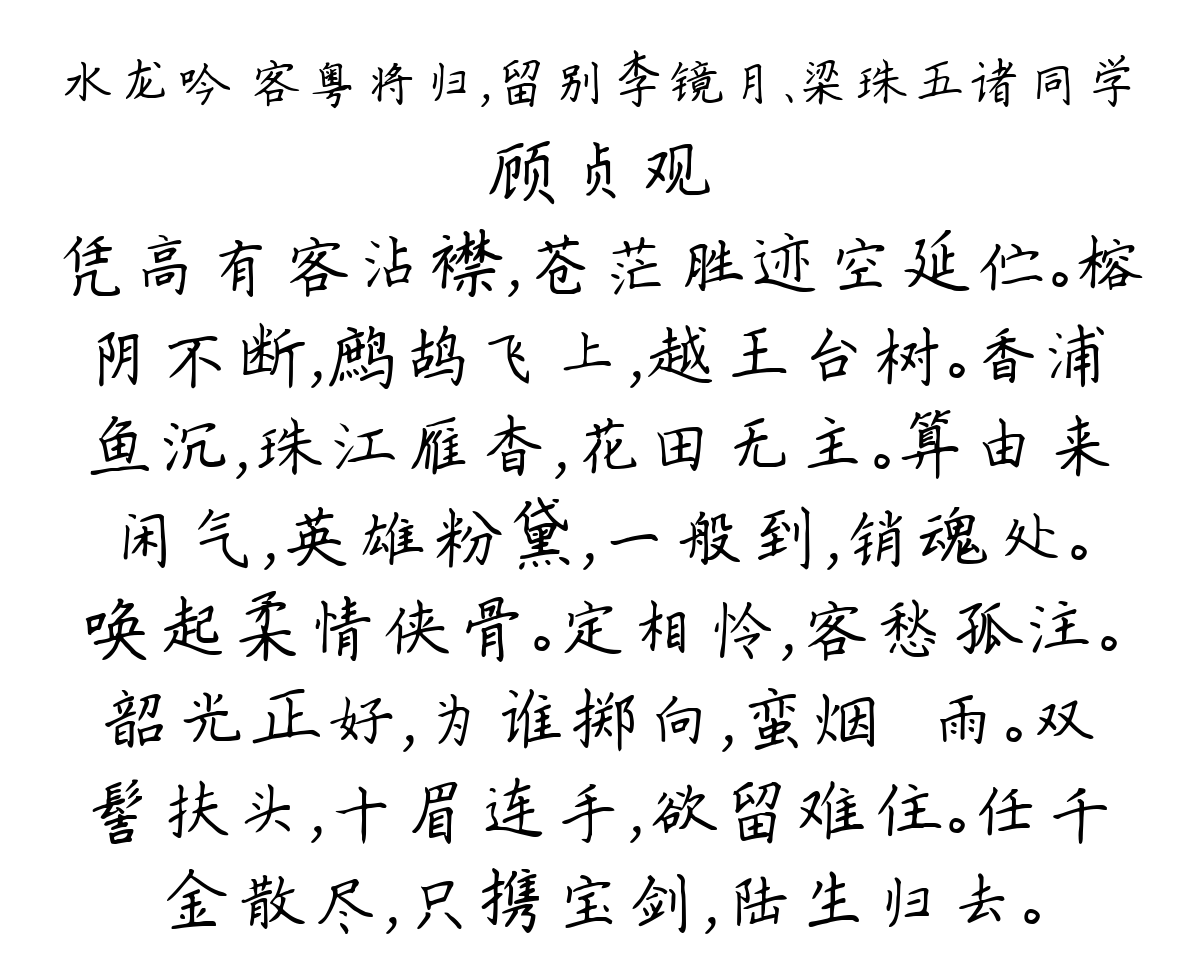 水龙吟 客粤将归,留别李镜月、梁珠五诸同学
顾贞观
凭高有客沾襟,苍茫胜迹空延伫。榕
阴不断,鹧鸪飞上,越王台树。香浦
鱼沉,珠江雁杳,花田无主。算由来
闲气,英雄粉黛,一般到,销魂处。
唤起柔情侠骨。定相怜,客愁孤注。
韶光正好,为谁掷向,蛮烟 雨。双
髻扶头,十眉连手,欲留难住。任千
金散尽,只携宝剑,陆生归去。